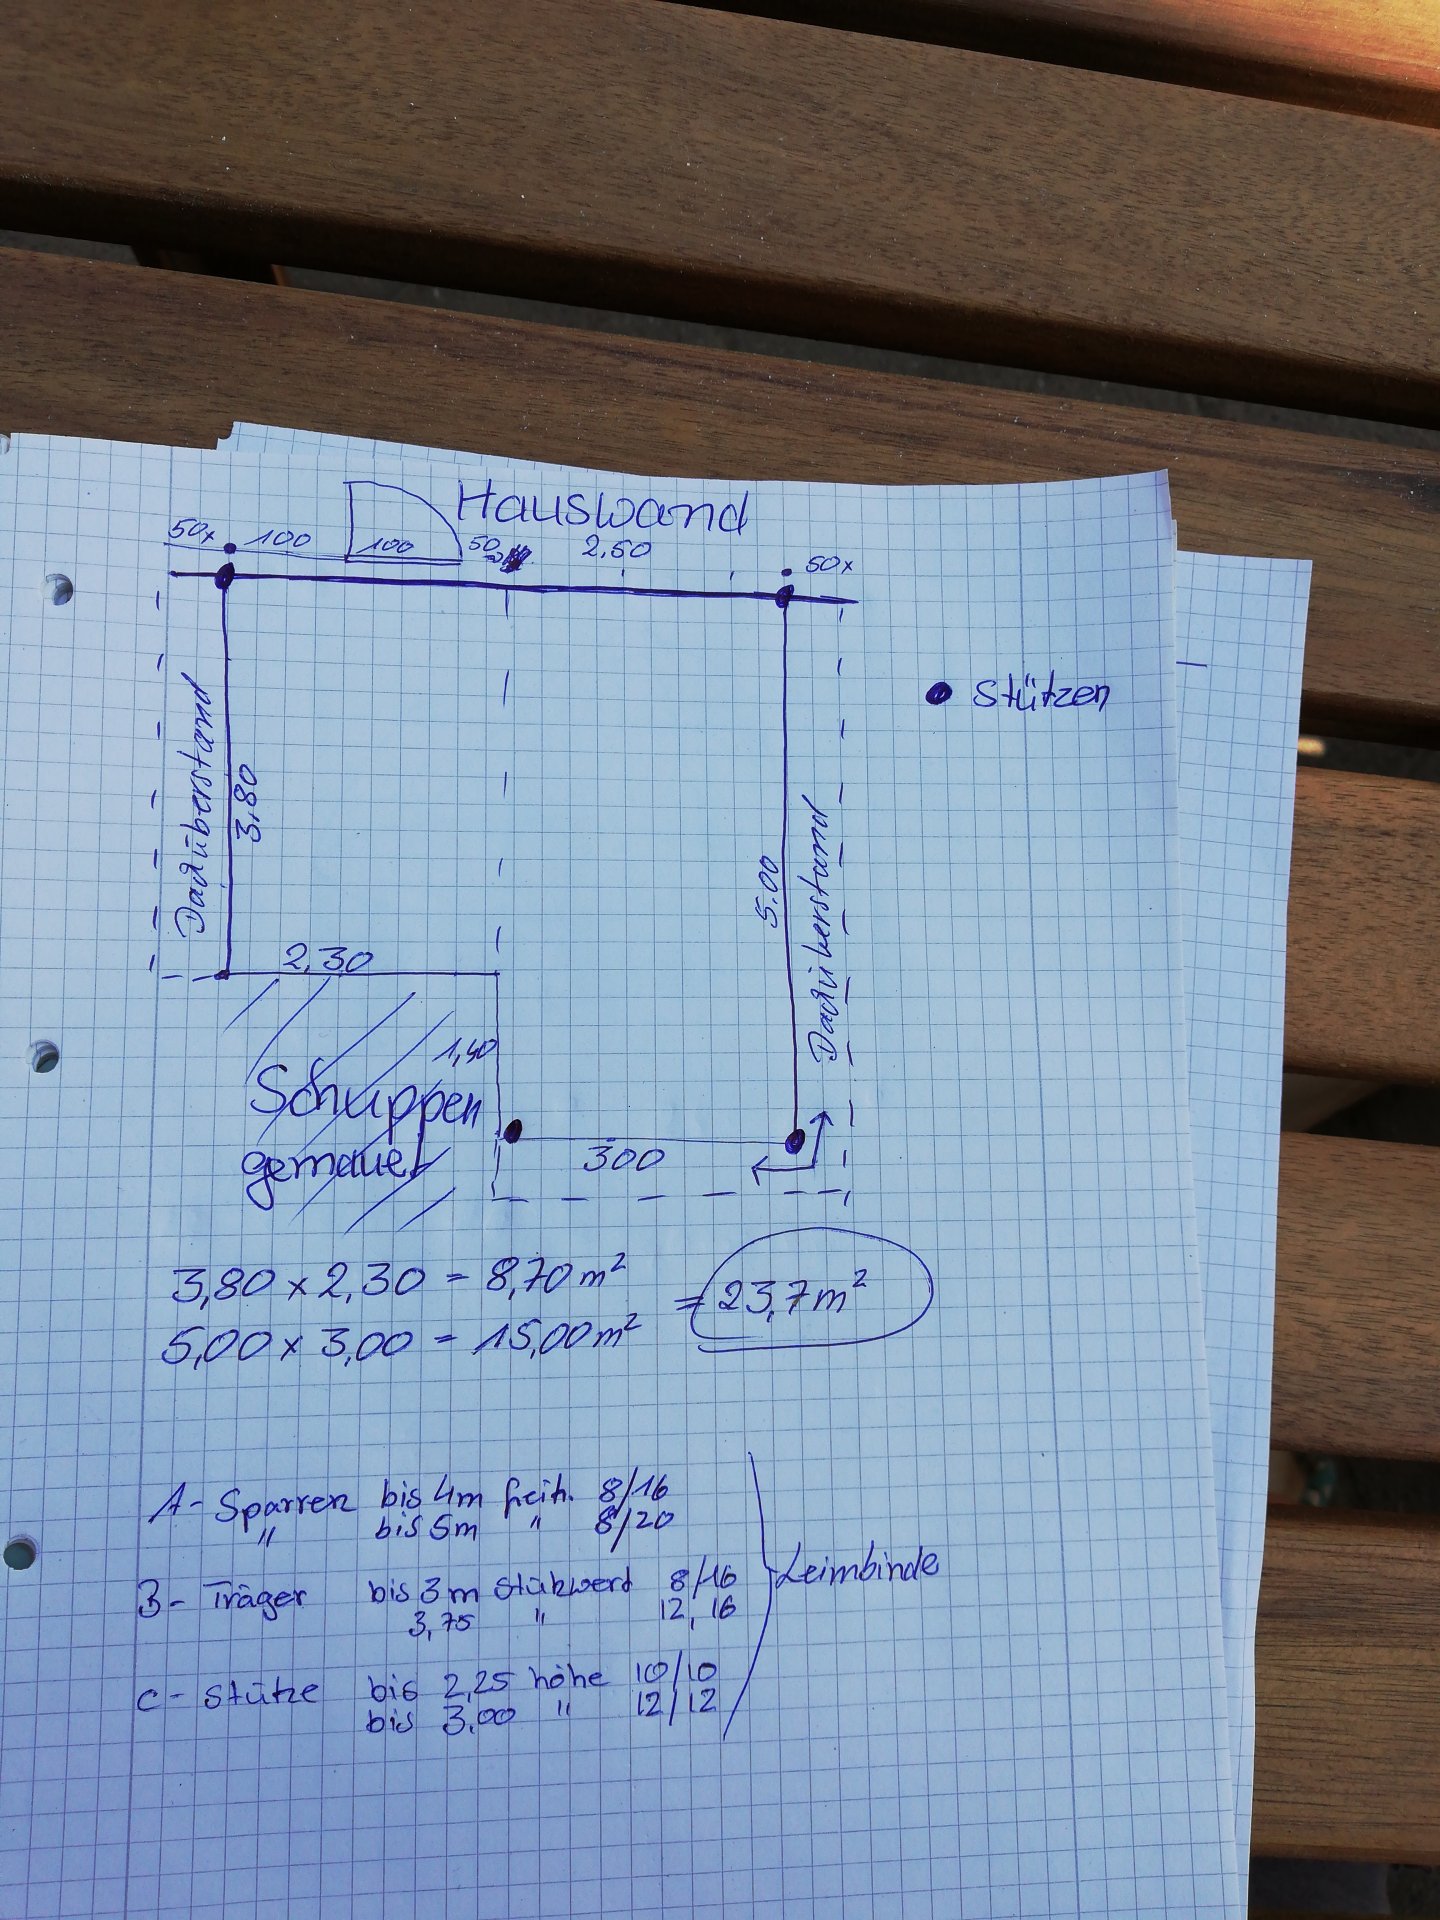 Hauswand
50x 100 100 50 2,50 50x
Stützen
Dachüberstand
3,80
5.00
Dachüberstand
2,30
1,40
Schuppen
gemauert
300
3,80 x 2,30 = 8,70 m²
= 23,7 m²
5,00 x 3,00 = 15,00 m²
A- Sparren bis 4m freih. 8/16
" bis 5m " 8/20
B- Träger bis 3m 8/16
3,75 " 12, 16
Leimbinde
C- Stütze bis 2,25 höhe 10/10
bis 3,00 " 12/12